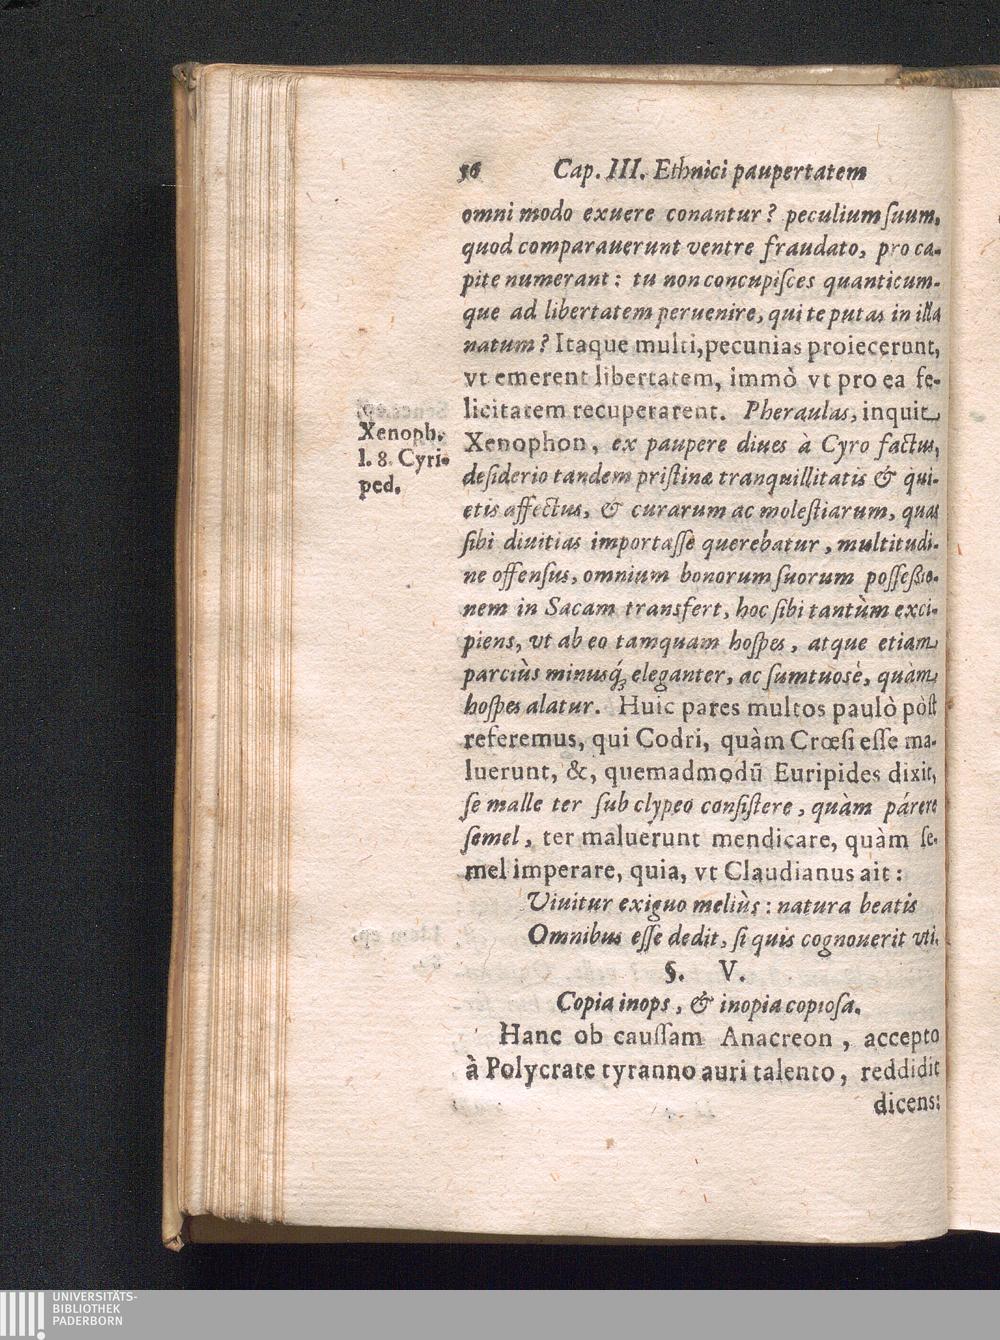 56 Cap. III. Ethnici paupertatem
omni modo exuere conantur? peculium ſuum,
quod comparauerunt ventre fraudato, pro ca-
pite numerant: tu non concupiſces quanticum-
que ad libertatem peruenire, qui te putas in illa
natum? Itaque multi, pecunias proiecerunt,
vt emerent libertatem, immò vt pro ea fe-
licitatem recuperarent. Pheraulas, inquit
Xenoph.
l. 8. Cyri-
ped.
Xenophon, ex paupere diues à Cyro factus,
deſiderio tandem priſtinæ tranquillitatis & qui-
etis affectus, & curarum ac moleſtiarum, quas
ſibi diuitias importaſſe querebatur, multitudi-
ne offenſus, omnium bonorum ſuorum poſſeßio-
nem in Sacam transfert, hoc ſibi tantùm exci-
piens, vt ab eo tamquam hoſpes, atque etiam
parciùs minusq́; eleganter, ac ſumtuosè, quàm
hoſpes alatur. Huic pares multos paulò pòſt
referemus, qui Codri, quàm Crœſi eſſe ma-
luerunt, &, quemadmodū Euripides dixit,
ſe malle ter ſub clypeo conſiſtere, quàm párere
ſemel, ter maluerunt mendicare, quàm ſe-
mel imperare, quia, vt Claudianus ait:
Viuitur exiguo meliùs: natura beatis
Omnibus eſſe dedit, ſi quis cognouerit vti.
§. V.
Copia inops, & inopia copioſa.
Hanc ob cauſſam Anacreon, accepto
à Polycrate tyranno auri talento, reddidit
dicens:
UNIVERSITÄTS-
BIBLIOTHEK
PADERBORN